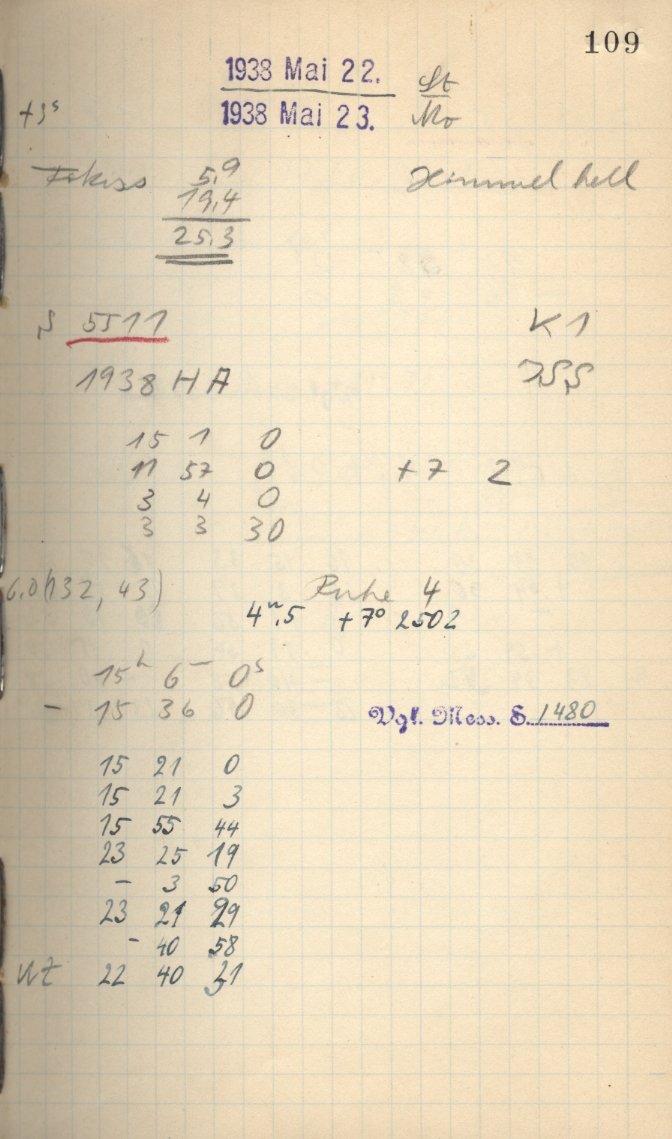 109
1938 Mai 22. St
1938 Mai 23. Mo
+3ˢ
Fokus 5,9 Himmel hell
19,4
25,3
5511 K 1
1938 HA
15 1 0
11 57 0 +7 2
3 4 0
3 3 30
6.0 (132, 43) Ruhe 4
4ᵐ.5 +7° 2502
15ʰ 6ᵐ 0ˢ
– 15 36 0 Vgl. Mess. S. 1480
15 21 0
15 21 3
15 55 44
23 25 19
– 3 50
23 21 29
– 40 58
22 40 31